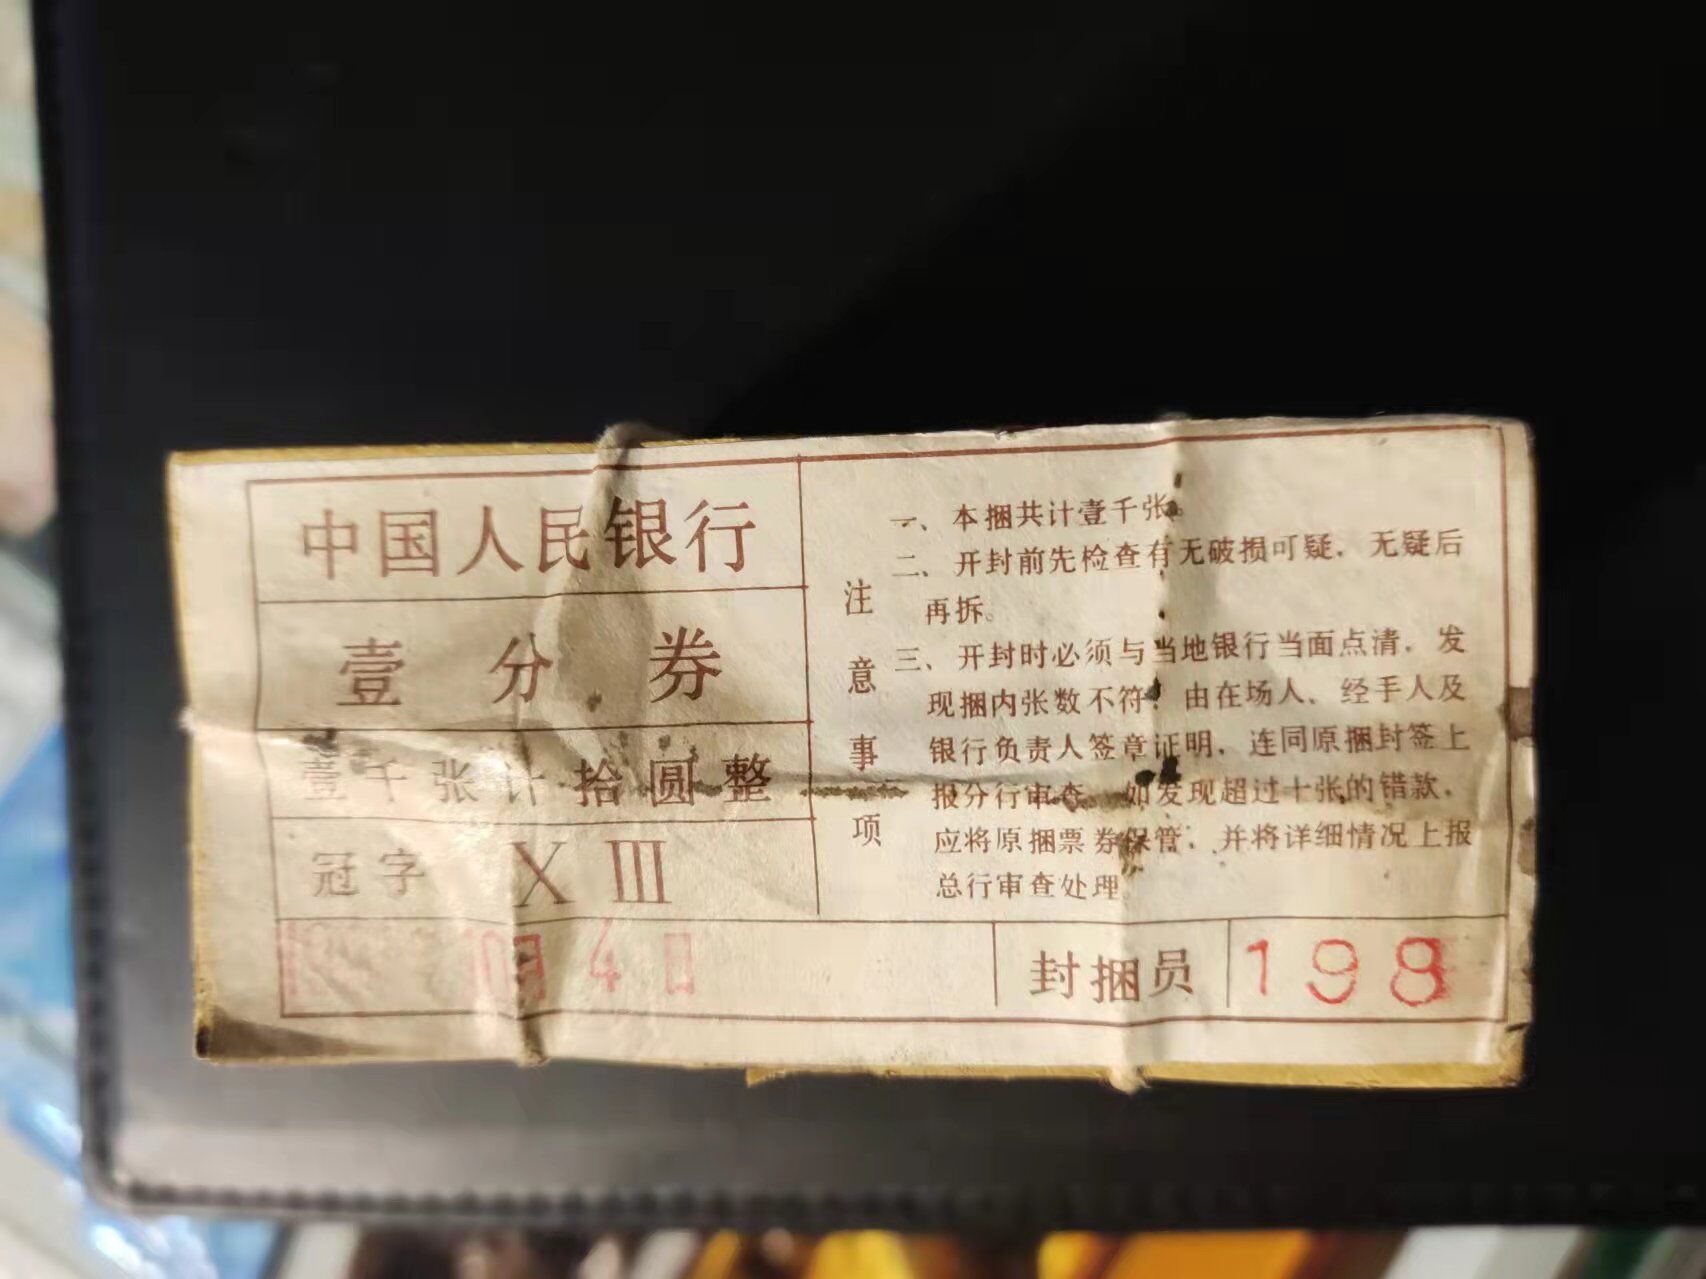 中国人民银行
壹分券
壹千张计拾圆整
冠字 X III
10月4日
注意事项
一、本捆共计壹千张。
二、开封前先检查有无破损可疑，无疑后
再拆。
三、开封时必须与当地银行当面点清，发
现捆内张数不符，由在场人、经手人及
银行负责人签章证明，连同原捆封签上
报分行审查。如发现超过十张的错款，
应将原捆票券保管，并将详细情况上报
总行审查处理
封捆员 198